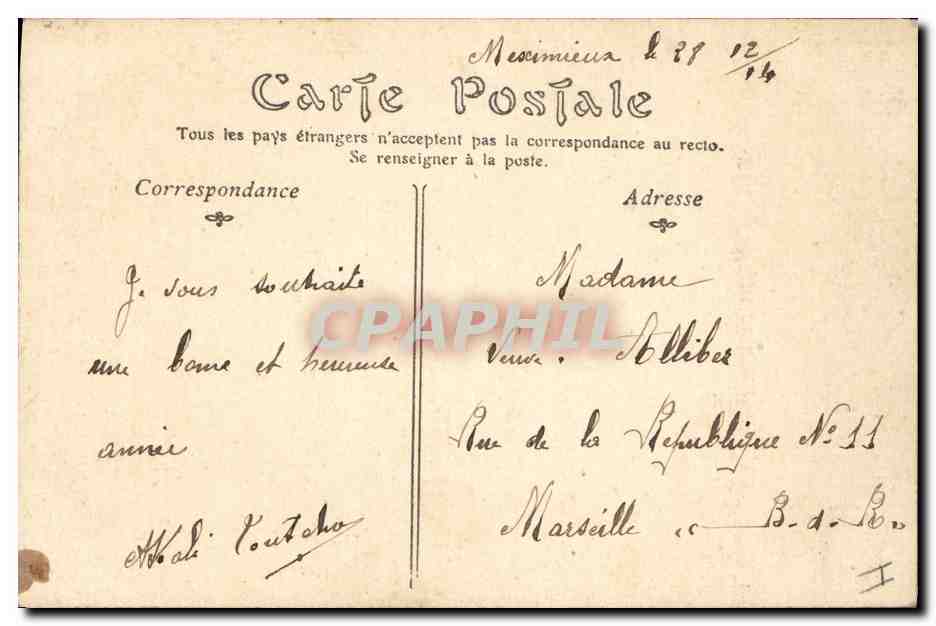 Meximieux le 28 12/14
Carte Postale
Tous les pays étrangers n'acceptent pas la correspondance au recto.
Se renseigner à la poste.
Correspondance
Adresse
Je vous souhaite
une bonne et heureuse
année
Madame
Veuve. Alliber
Rue de la Republique No 11
Marseille « B. d. R »
CPAPHIL
I